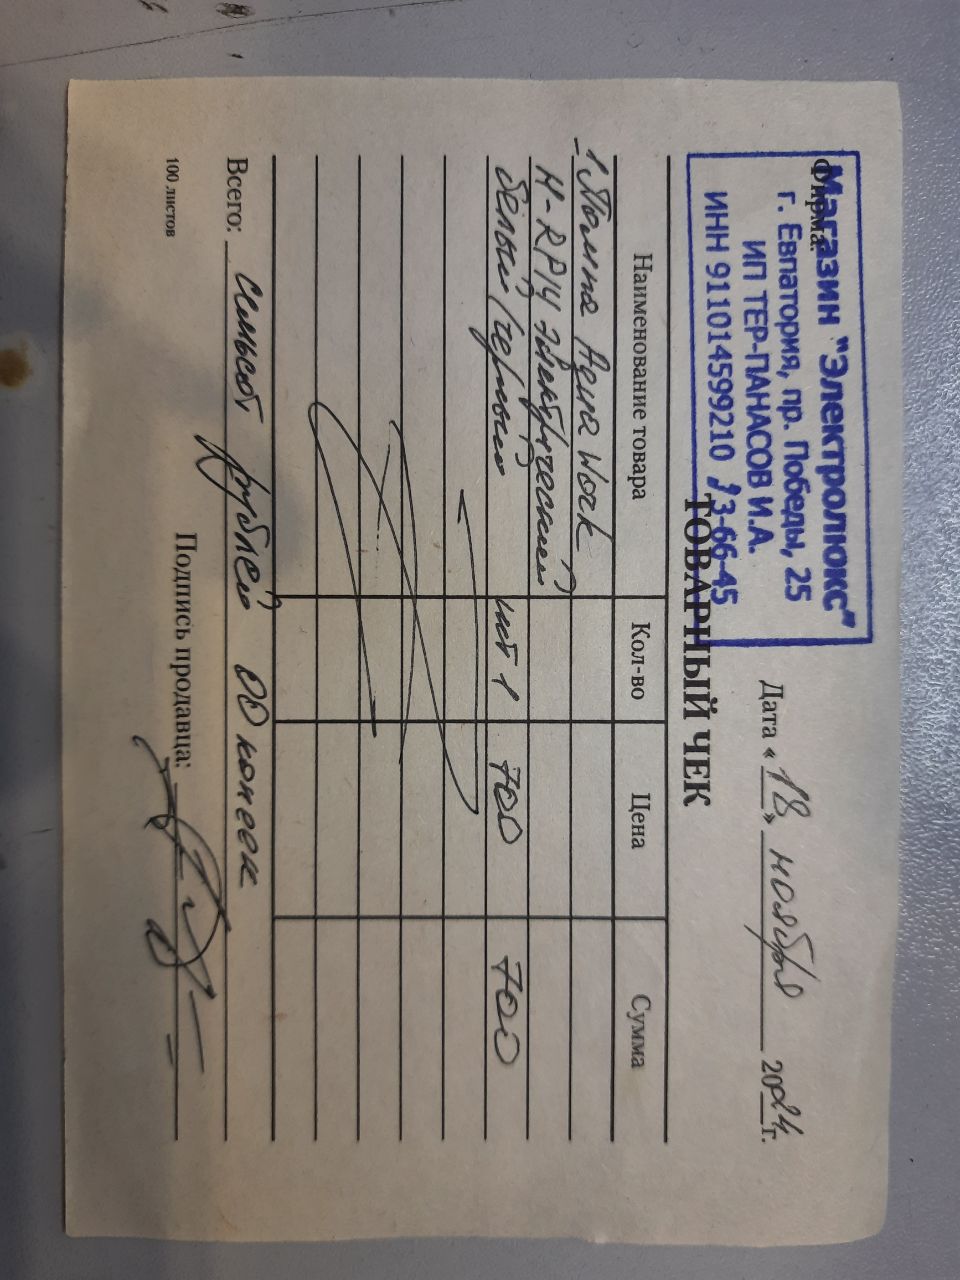 Фирма:
Магазин "Электролюкс"
г. Евпатория, пр. Победы, 25
ИП ТЕР-ПАНАСОВ И.А.
ИНН 911014599210 3-66-45
Дата « 18 » ноября 2024 г.
ТОВАРНЫЙ ЧЕК
Наименование товара Кол-во Цена Сумма
1. Помпа Aqua Work
H-RP14 электрический
белый/черный шт 1 700 700
Всего: Семьсот рублей 00 копеек
Подпись продавца:
100 листов